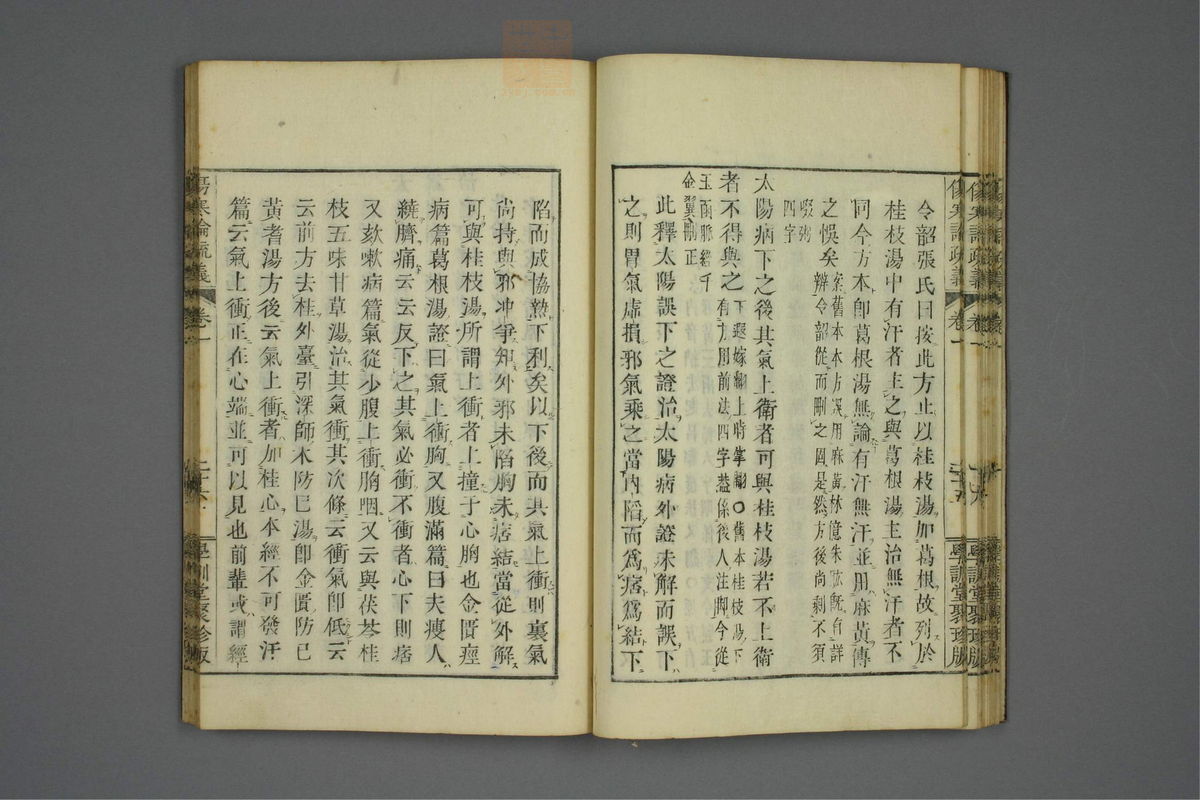 令韶張氏曰按此方止以桂枝湯加葛根故列於
桂枝湯中有汗者主之與葛根湯主治無汗者不
同今方本卽葛根湯無論有汗無汗並用麻黃傳
之悞矣
案舊本本方誤用麻黃林億朱肱旣有詳
辨令韶從而刪之固是然方後尚剩不須
啜粥
四字
太陽病下之後其氣上衝者可與桂枝湯若不上衝
者不得與之
下遐嫁翻上時掌翻〇舊本桂枝湯下
有方用前法四字蓋係後人注脚今從
玉函脉經千
金翼刪正
此釋太陽誤下之證治太陽病外證未解而誤下
之則胃氣虛損邪氣乘之當內陷而爲痞爲結下
陷而成協熱下利矣以下後而其氣上衝則裏氣
尚持與邪冲爭知外邪未陷胸未痞結當從外解
可與桂枝湯所謂上衝者上撞于心胸也金匱痙
病篇葛根湯證曰氣上衝胸又腹滿篇曰夫瘦人
繞臍痛云云反下之其氣必衝不衝者心下則痞
又欬嗽病篇氣從少腹上衝胸咽又云與茯苓桂
枝五味甘草湯治其氣衝其次條云衝氣卽低云
云前方去桂外臺引深師木防巳湯卽金匱防巳
黃耆湯方後云氣上衝者加桂心本經不可發汗
篇云氣上衝正在心端並可以見也前輩或謂經
傷寒論疏義
卷一
二十六
學訓堂聚珍版